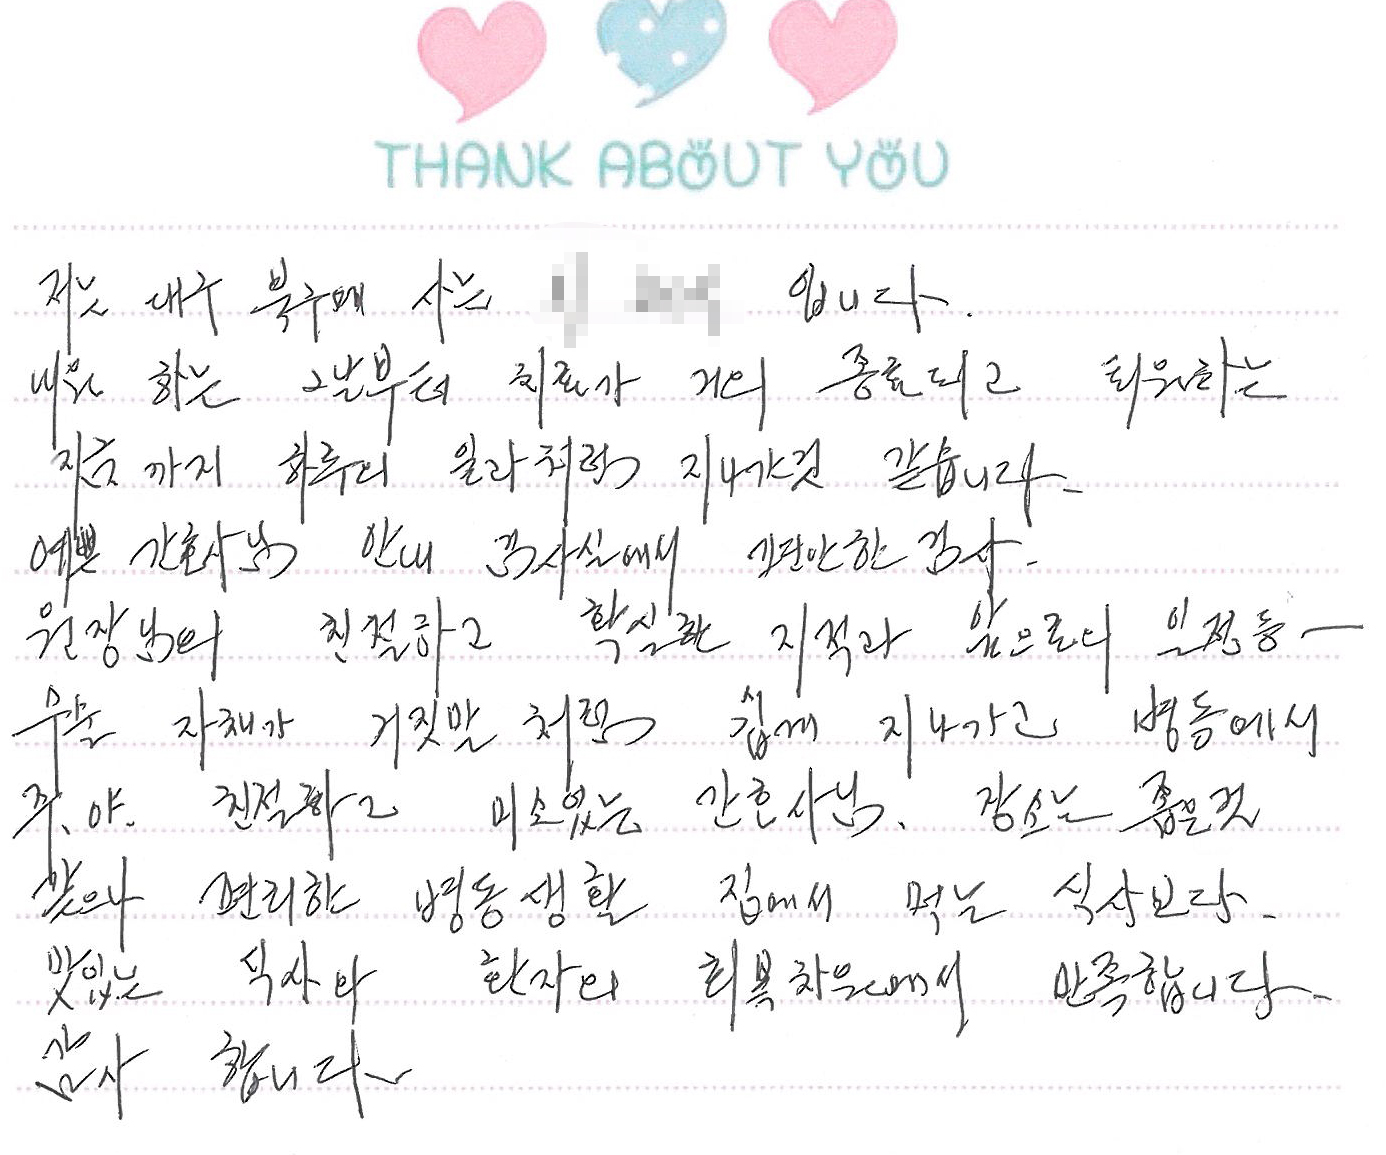 THANK ABOUT YOU
저는 대구 북구에 사는 입니다.
내원 하는 그날부터 치료가 거의 종료되고 퇴원하는
지금 까지 하루의 일과처럼 지나간것 같습니다.
예쁜 간호사님 안내 검사실에서 간단한 검사.
원장님의 친절하고 확실한 지적과 앞으로의 일정등
자체가 거짓말 처럼 쉽게 지나가고 병동에서
주.야. 친절하고 미소있는 간호사님. 장소는 좁은것
같으나 편리한 병동생활 집에서 먹는 식사보다.
맛있는 식사와 환자의 회복차원에서 만족합니다.
감사 합니다